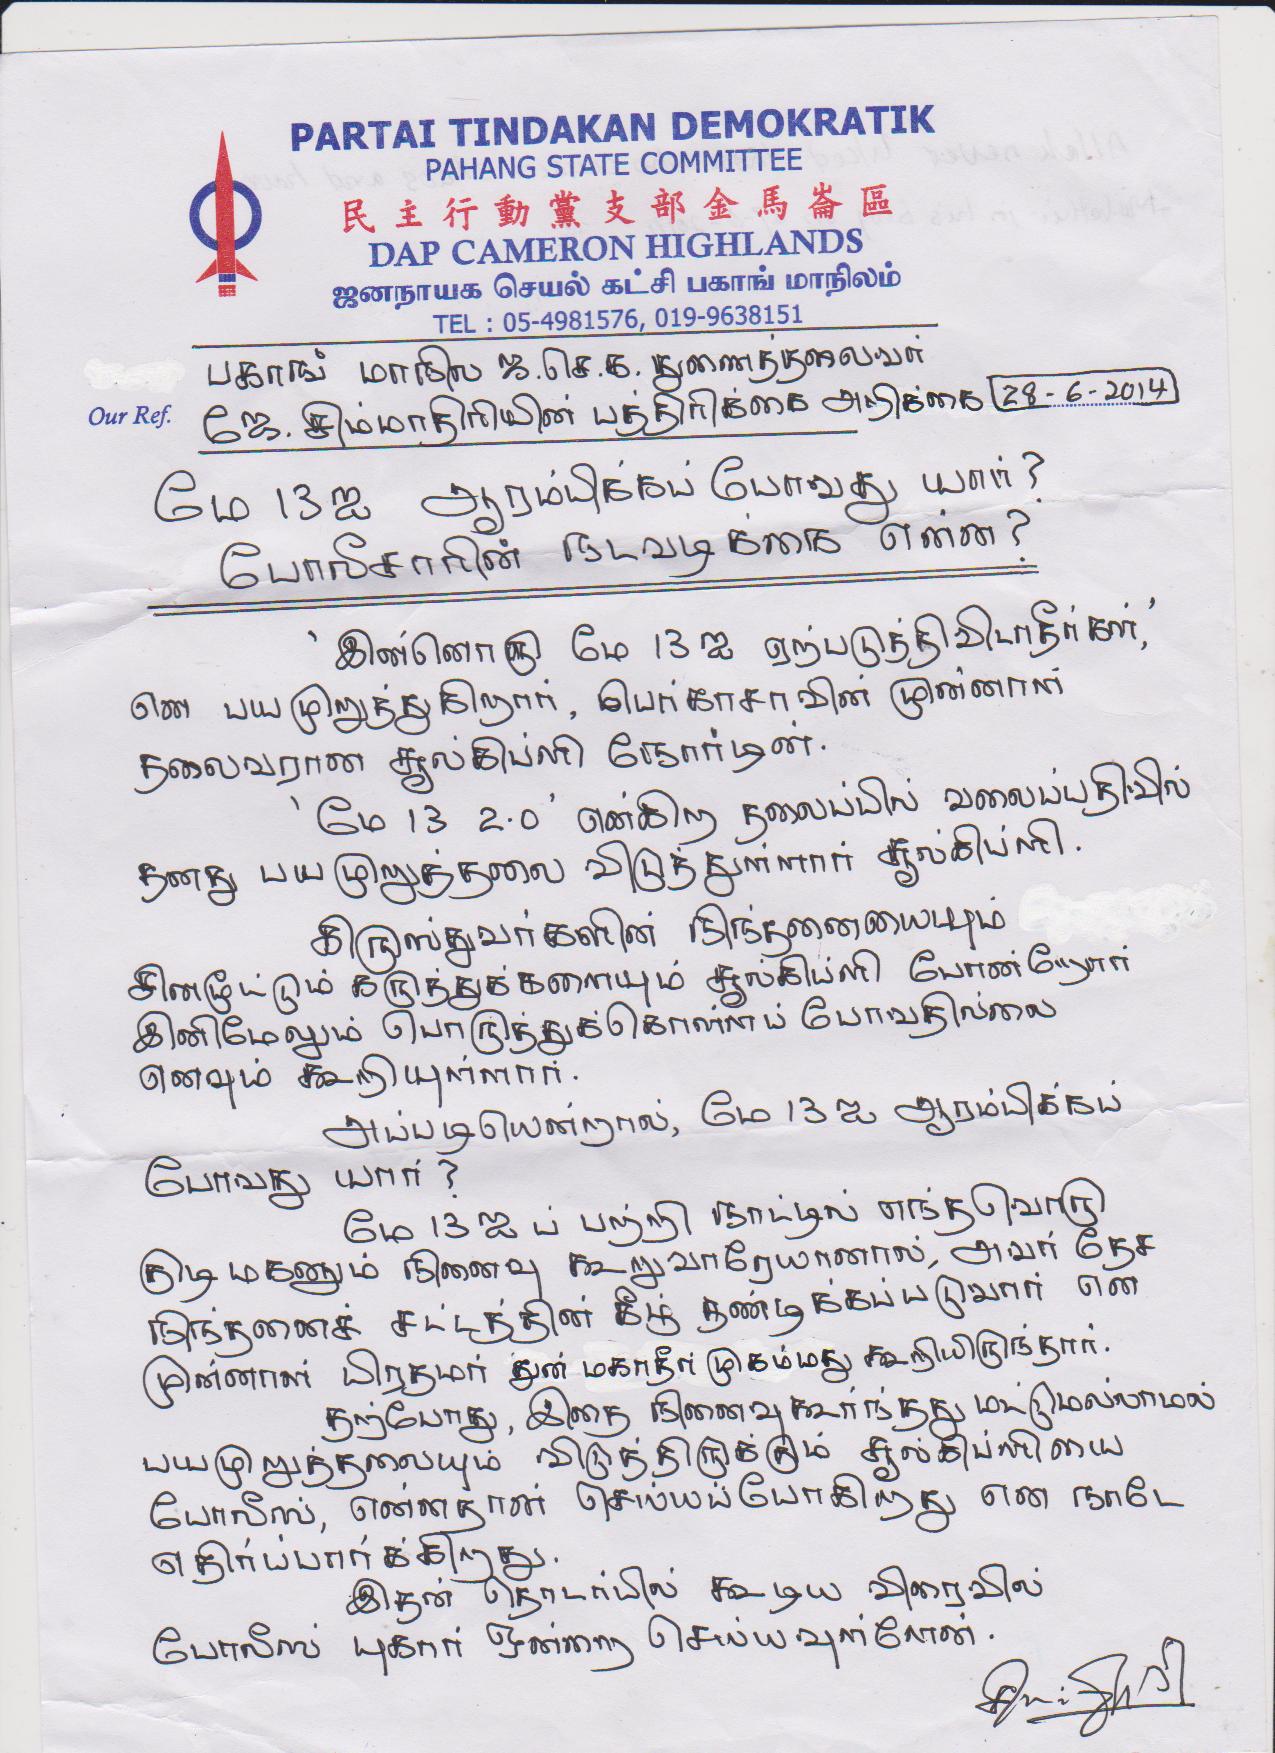 PARTAI TINDAKAN DEMOKRATIK
PAHANG STATE COMMITTEE
民主行動黨支部金馬崙區
DAP CAMERON HIGHLANDS
ஜனநாயக செயல் கட்சி பகாங் மாநிலம்
TEL : 05-4981576, 019-9638151
பகாங் மாநில ஜ.செ.க. துணைத்தலைவர்
Our Ref.
ஜே. சிம்மாதிரியின் பத்திரிக்கை அறிக்கை 28-6-2014
மே 13ஐ ஆரம்பிக்கப் போவது யார்?
போலீசாரின் நடவடிக்கை என்ன?
'இன்னொரு மே 13ஐ ஏற்படுத்திவிடாதீர்கள்,'
என பயமுறுத்துகிறார், பெர்காசாவின் முன்னாள்
தலைவரான சூல்கிப்ளி நோர்டின்.
'மே 13 2.0' என்கிற தலைப்பில் வலைப்பதிவில்
தனது பயமுறுத்தலை விடுத்துள்ளார் சூல்கிப்ளி.
கிருஸ்துவர்களின் நிந்தனையையும்
சினமூட்டும் கருத்துக்களையும் சூல்கிப்ளி போன்றோர்
இனிமேலும் பொறுத்துக்கொள்ளப் போவதில்லை
எனவும் கூறியுள்ளார்.
அப்படியென்றால், மே 13ஐ ஆரம்பிக்கப்
போவது யார்?
மே 13ஐப் பற்றி நாட்டில் எந்தவொரு
குடிமகனும் நினைவு கூறுவாரேயானால், அவர் தேச
நிந்தனைச் சட்டத்தின் கீழ் தண்டிக்கப்படுவார் என
முன்னாள் பிரதமர் துன் மகாதீர் முகம்மது கூறியிருந்தார்.
தற்போது, இதை நினைவுகூர்ந்தது மட்டுமல்லாமல்
பயமுறுத்தலையும் விடுத்திருக்கும் சூல்கிப்ளியை
போலீஸ், என்னதான் செய்யப்போகிறது என நாடே
எதிர்ப்பார்க்கிறது.
இதன் தொடர்பில் கூடிய விரைவில்
போலீஸ் புகார் ஒன்றை செய்யவுள்ளேன்.